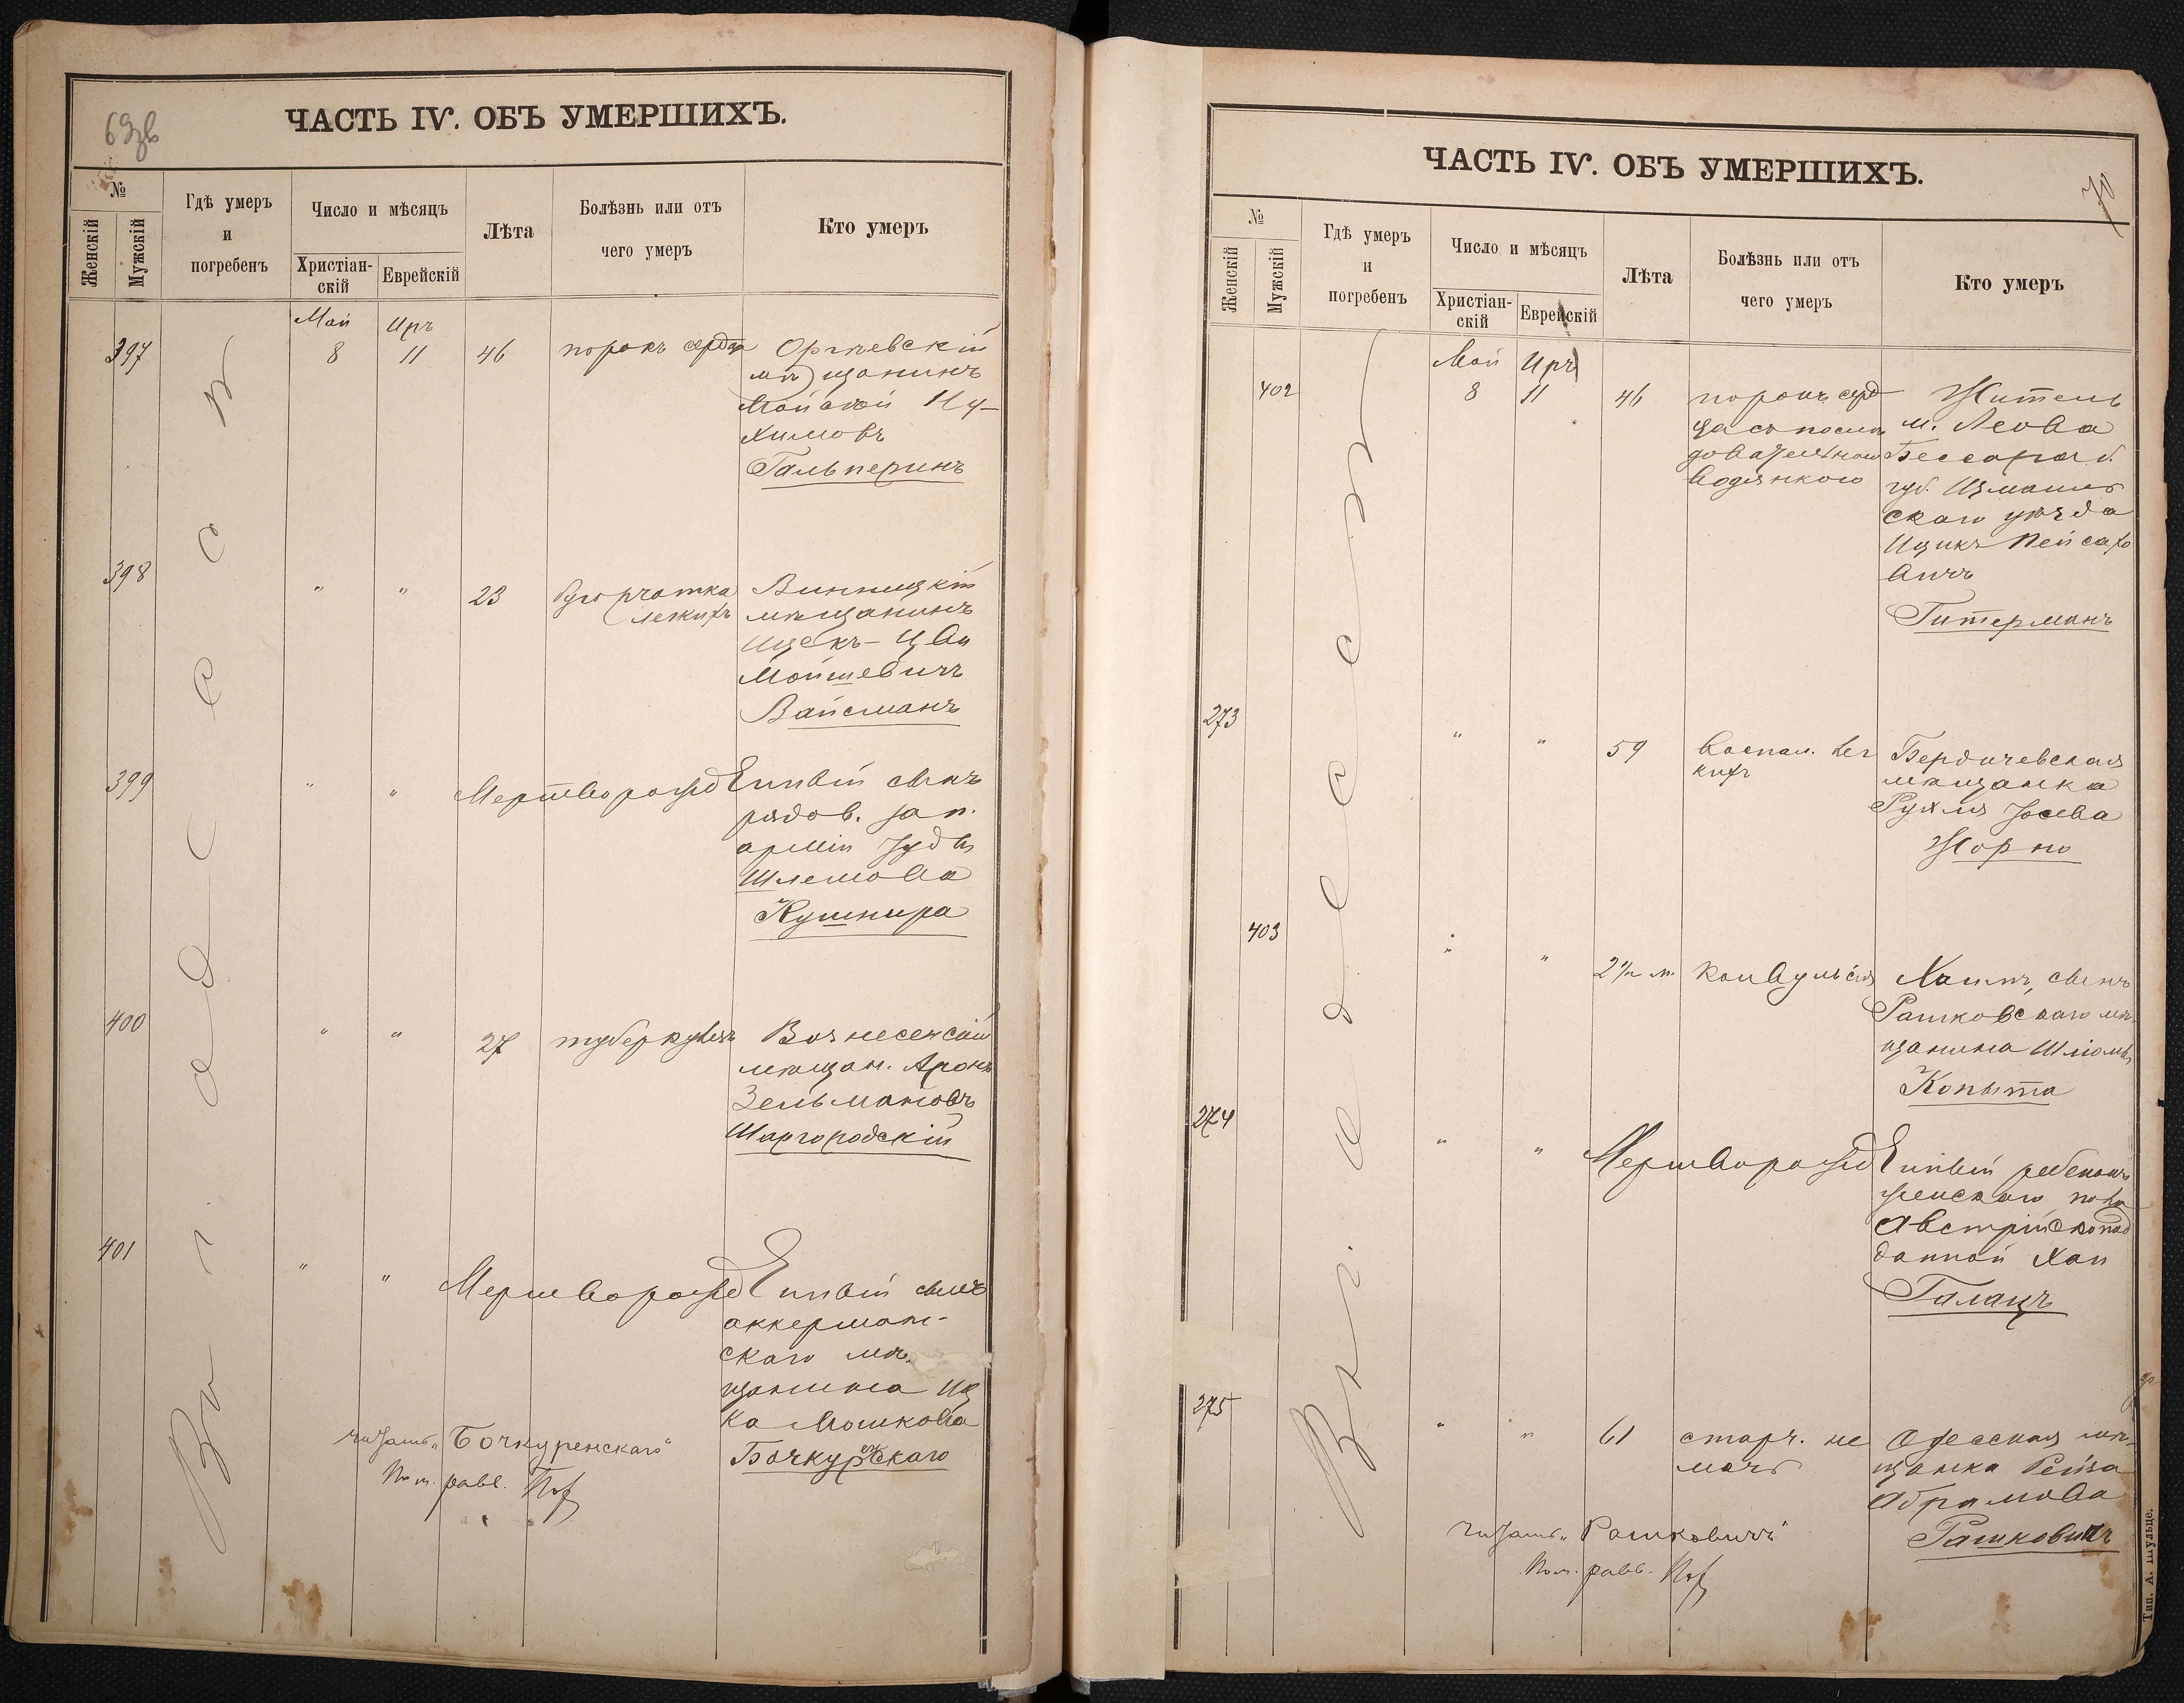 69зв
ЧАСТЬ IV. ОБЪ УМЕРШИХЪ.
№
Женскій
Мужскій
Гдѣ умеръ
и
погребенъ
Число и мѣсяцъ
Христіан-
скій
Еврейскій
Лѣта
Болѣзнь или отъ
чего умеръ
Кто умеръ
Въ г. Одессѣ
Май Иръ
397 8 11 46 порокъ сердца Оргѣевскій
мѣщанинъ
Мойсей Ну-
химовъ
Гальперинъ
398 " " 23 бугорчатка Винницкій
легкихъ мѣщанинъ
Ицекъ-Цви
Мойшевичъ
Вайсманъ
399 " " Мертворожденный сынъ
рядов. зап.
арміи Іуды
Шлемова
Кушнира
400 " " 27 туберкулезъ Вознесенскій
мѣщан. Аронъ
Зельмановъ
Шаргородскій
401 " " Мертворожденный сынъ
аккерман-
скаго мѣ-
щанина Иц
ка Мошкова
Бочкуренскаго
читать „Бочкуренскаго"
Пом. равв.
70
ЧАСТЬ IV. ОБЪ УМЕРШИХЪ.
№
Женскій
Мужскій
Гдѣ умеръ
и
погребенъ
Число и мѣсяцъ
Христіан-
скій
Еврейскій
Лѣта
Болѣзнь или отъ
чего умеръ
Кто умеръ
Въ г. Одессѣ
Май Иръ
402 8 11 46 порокъ серд Житель
ца съ послѣ м. Леова
довательною Бессараб.
водянкою губ. Измаиль
скаго уѣзда
Ицикъ Пейсахо
вичъ
Гитерманъ
273 " " 59 воспал. лег Бердичевская
кихъ мѣщанка
Рухля Іосева
Жорно
403 " " 2 1/2 м. конвульсія Хаимъ, сынъ
Рашковскаго мѣ-
щанина Шліомы
Копыта
274 " " Мертворожденный ребенокъ
женскаго пола
Австрійскопод
данной Хаи
Галацъ
275 " " 61 старч. не Одесская мѣ-
мочь щанка Рейза
Абрамова
Рашковичъ
читать „Рашковичъ"
Пом. равв.
Тип. А. Шульце.